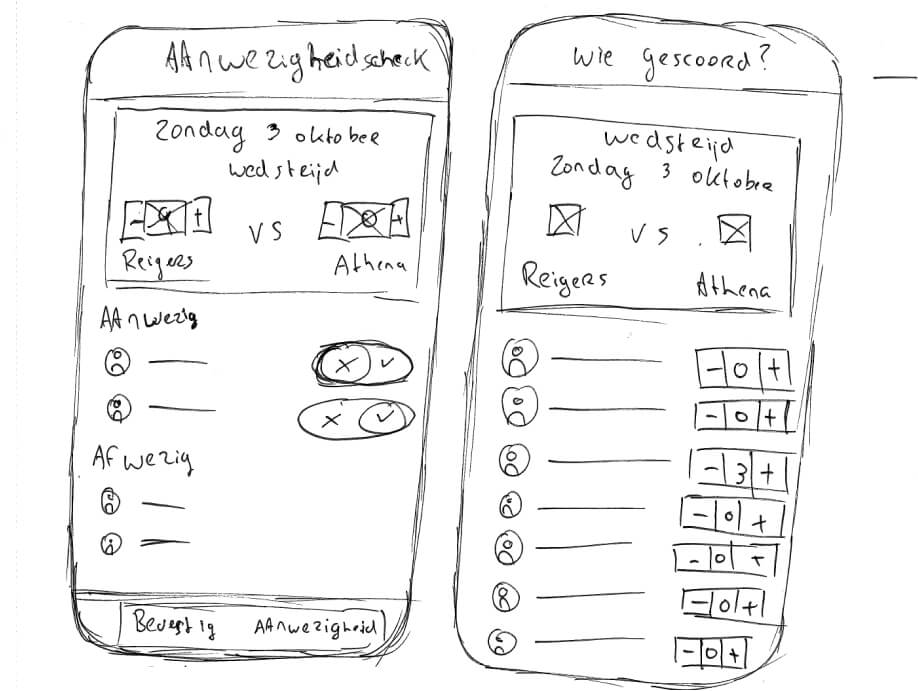 AAnwezigheidscheck
Zondag 3 oktober
wedsteijd
- +
vs
- 0 +
Reigers
Athena
AAnwezig
x ✓
x ✓
AFwezig
Bevestig AAnwezigheid
Wie gescoord?
wedsteijd
Zondag 3 oktober
vs
Reigers
Athena
- 0 +
- 0 +
- 3 +
- 0 +
- 0 +
- 0 +
- 0 +